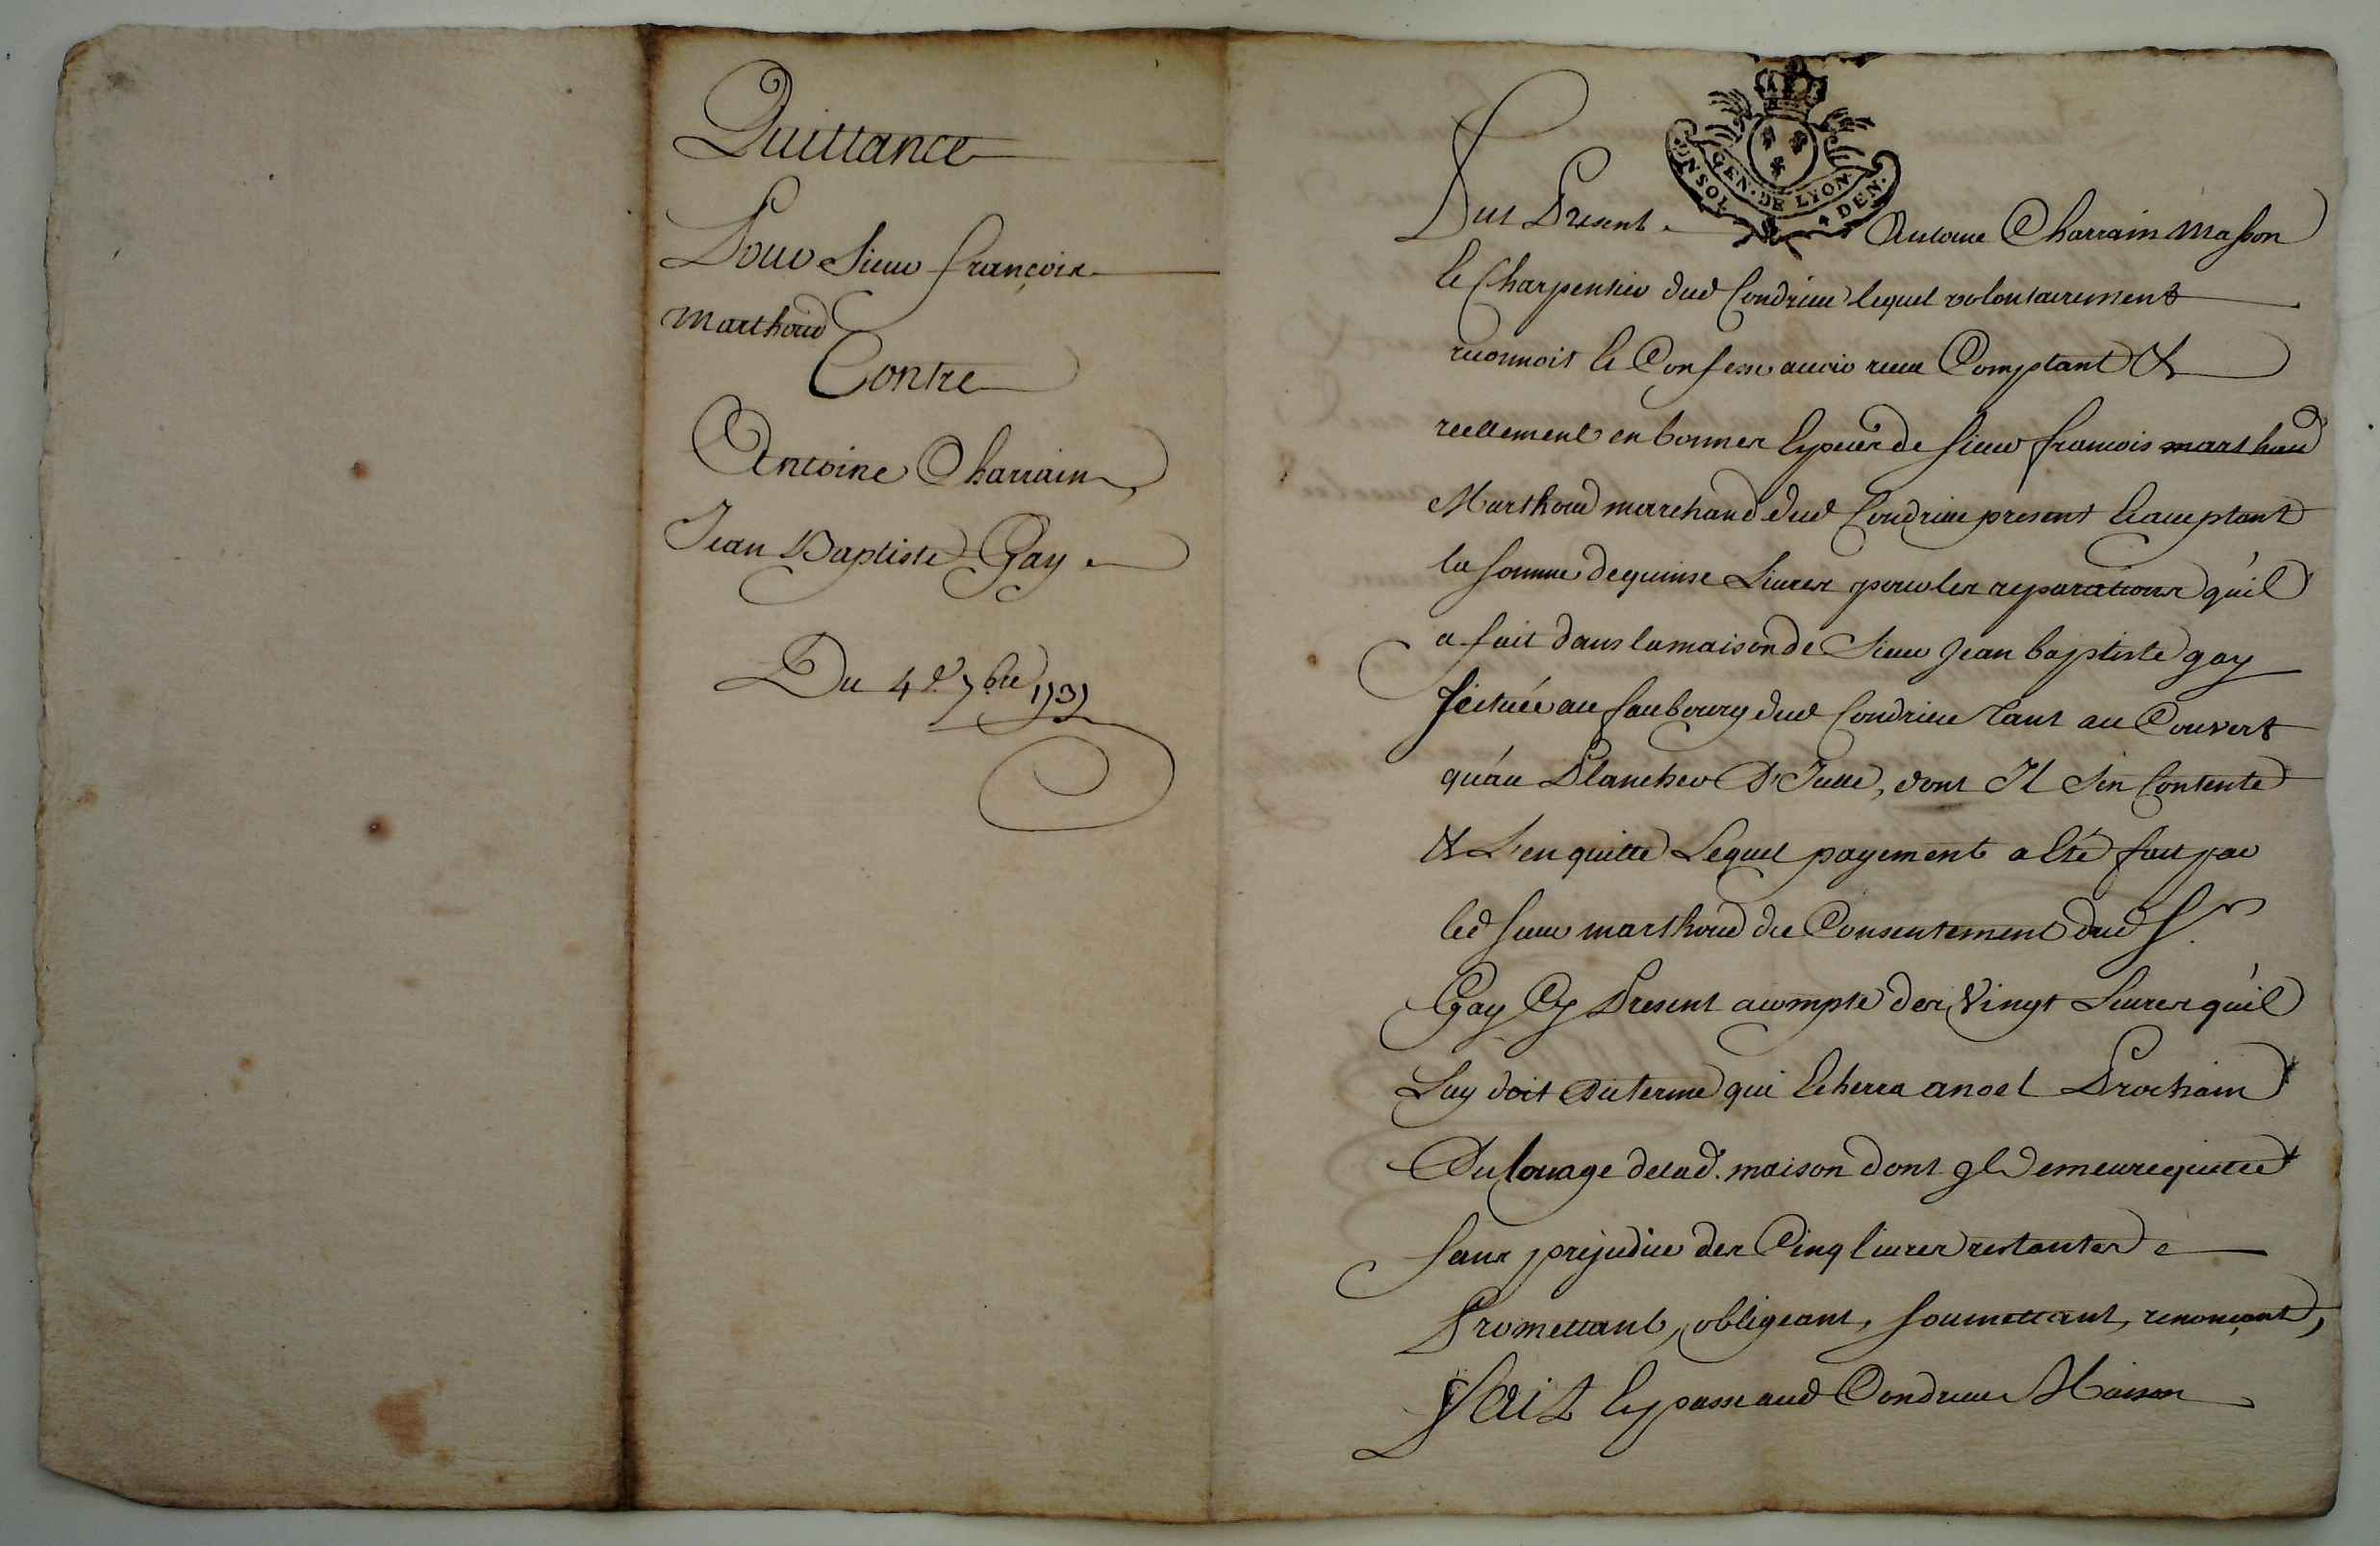 Quittance
Pour Sieur françois
marthoud
Contre
Antoine Charrain
Jean Baptiste Gay
Du 4e 7bre
GEN · DE LYON
DEN ·
Fut Present Antoine Charrain Masson
Et Charpentier dud Condrieu lequel volontairement
reconnoit Et Confesse avoir receu Comptant &
reellement en bonnes Especes de Sieur francois marthoud
Marthoud marchand dud Condrieu present Et acceptant
la somme de quinse Livres pour les reparations qu'il
a fait dans la maison de Sieur Jean baptiste gay
scituée au faubourg dud Condrieu tant au Couvert
qu'au Plancher D'Icelle, dont Il S'en Contente
& L'en quitte Lequel payement a Eté fait par
led Sieur marthoud du Consentement dud Sr
Gay Cy Present acompte des Vingt Livres qu'il
Luy doit du terme qui Echerra a noel Prochain
Du louage de lad. maison dont Il Demeure quitte
Sans prejudice des Cinq livres restantes
Promettant, obligeant, Soumettant, renonçant,
Fait Et passé aud Condrieu Maison